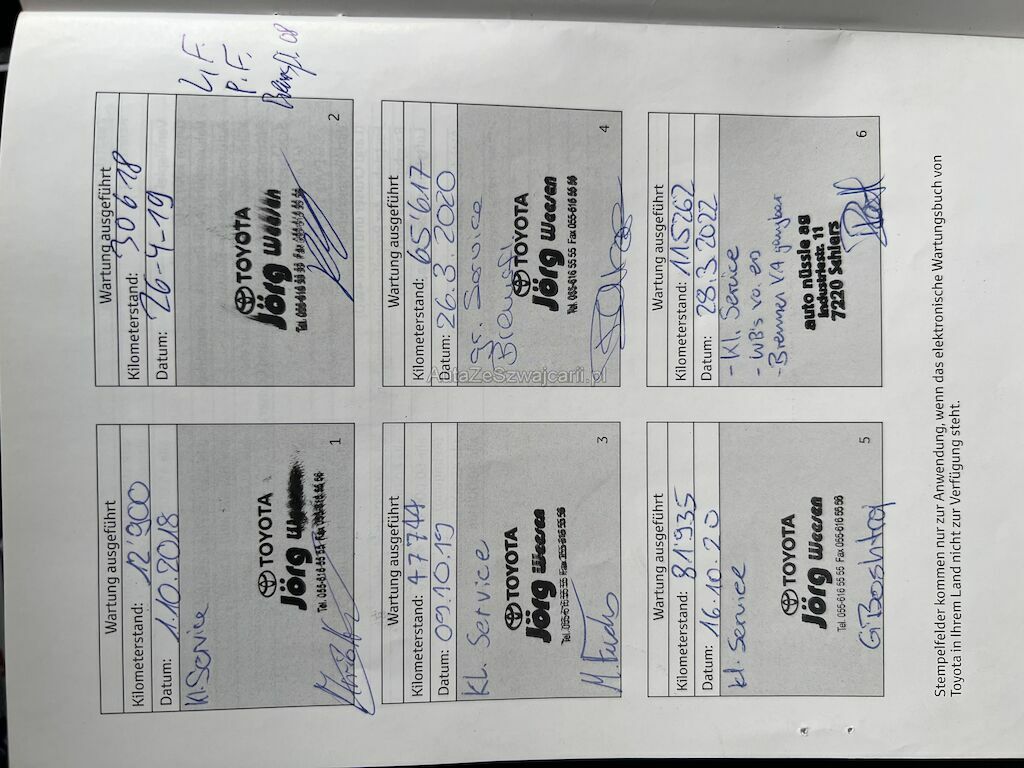 Wartung ausgeführt
Kilometerstand: 12'900
Datum: 1.10.2018
Kl. Service
TOYOTA
Jörg Weesen
Tel. 055-616 55 55 Fax 055-616 56 56
1
Wartung ausgeführt
Kilometerstand: 30618
Datum: 26-4-19
TOYOTA
Jörg Weesen
Tel. 055-616 55 55 Fax 055-616 56 56
2
P.F.
Wartung ausgeführt
Kilometerstand: 47744
Datum: 09.10.19
Kl. Service
TOYOTA
Jörg Weesen
Tel. 055-616 55 55 Fax 055-616 56 56
3
Wartung ausgeführt
Kilometerstand: 65'617
Datum: 26.3.2020
gr. Service
TOYOTA
Jörg Weesen
Tel. 055-616 55 55 Fax 055-616 56 56
4
Wartung ausgeführt
Kilometerstand: 81935
Datum: 16.10.20
kl. Service
TOYOTA
Jörg Weesen
Tel. 055-616 55 55 Fax 055-616 56 56
5
Wartung ausgeführt
Kilometerstand: 115262
Datum: 28.3.2022
- Kl. Service
- WB's vo. en
- Bremsen VA gangbar
auto nüssle ag
Industriestr. 11
7220 Schiers
6
Stempelfelder kommen nur zur Anwendung, wenn das elektronische Wartungsbuch von
Toyota in Ihrem Land nicht zur Verfügung steht.
AutaZeSzwajcarii.pl